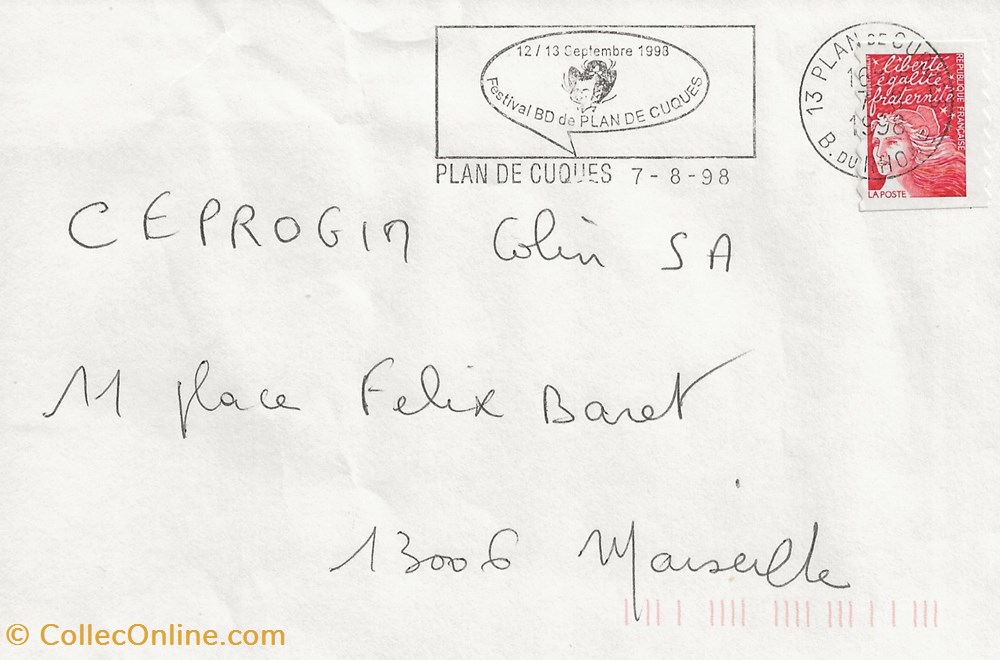 12 / 13 Septembre 1998
Festival BD de PLAN DE CUQUES
PLAN DE CUQUES 7 - 8 - 98
13 PLAN DE
1998
B. DU RHONE
liberté
égalité
fraternité
RÉPUBLIQUE FRANÇAISE
LA POSTE
CEPROGIM Colin SA
11 place Felix Baret
13006 Marseille
© CollecOnline.com